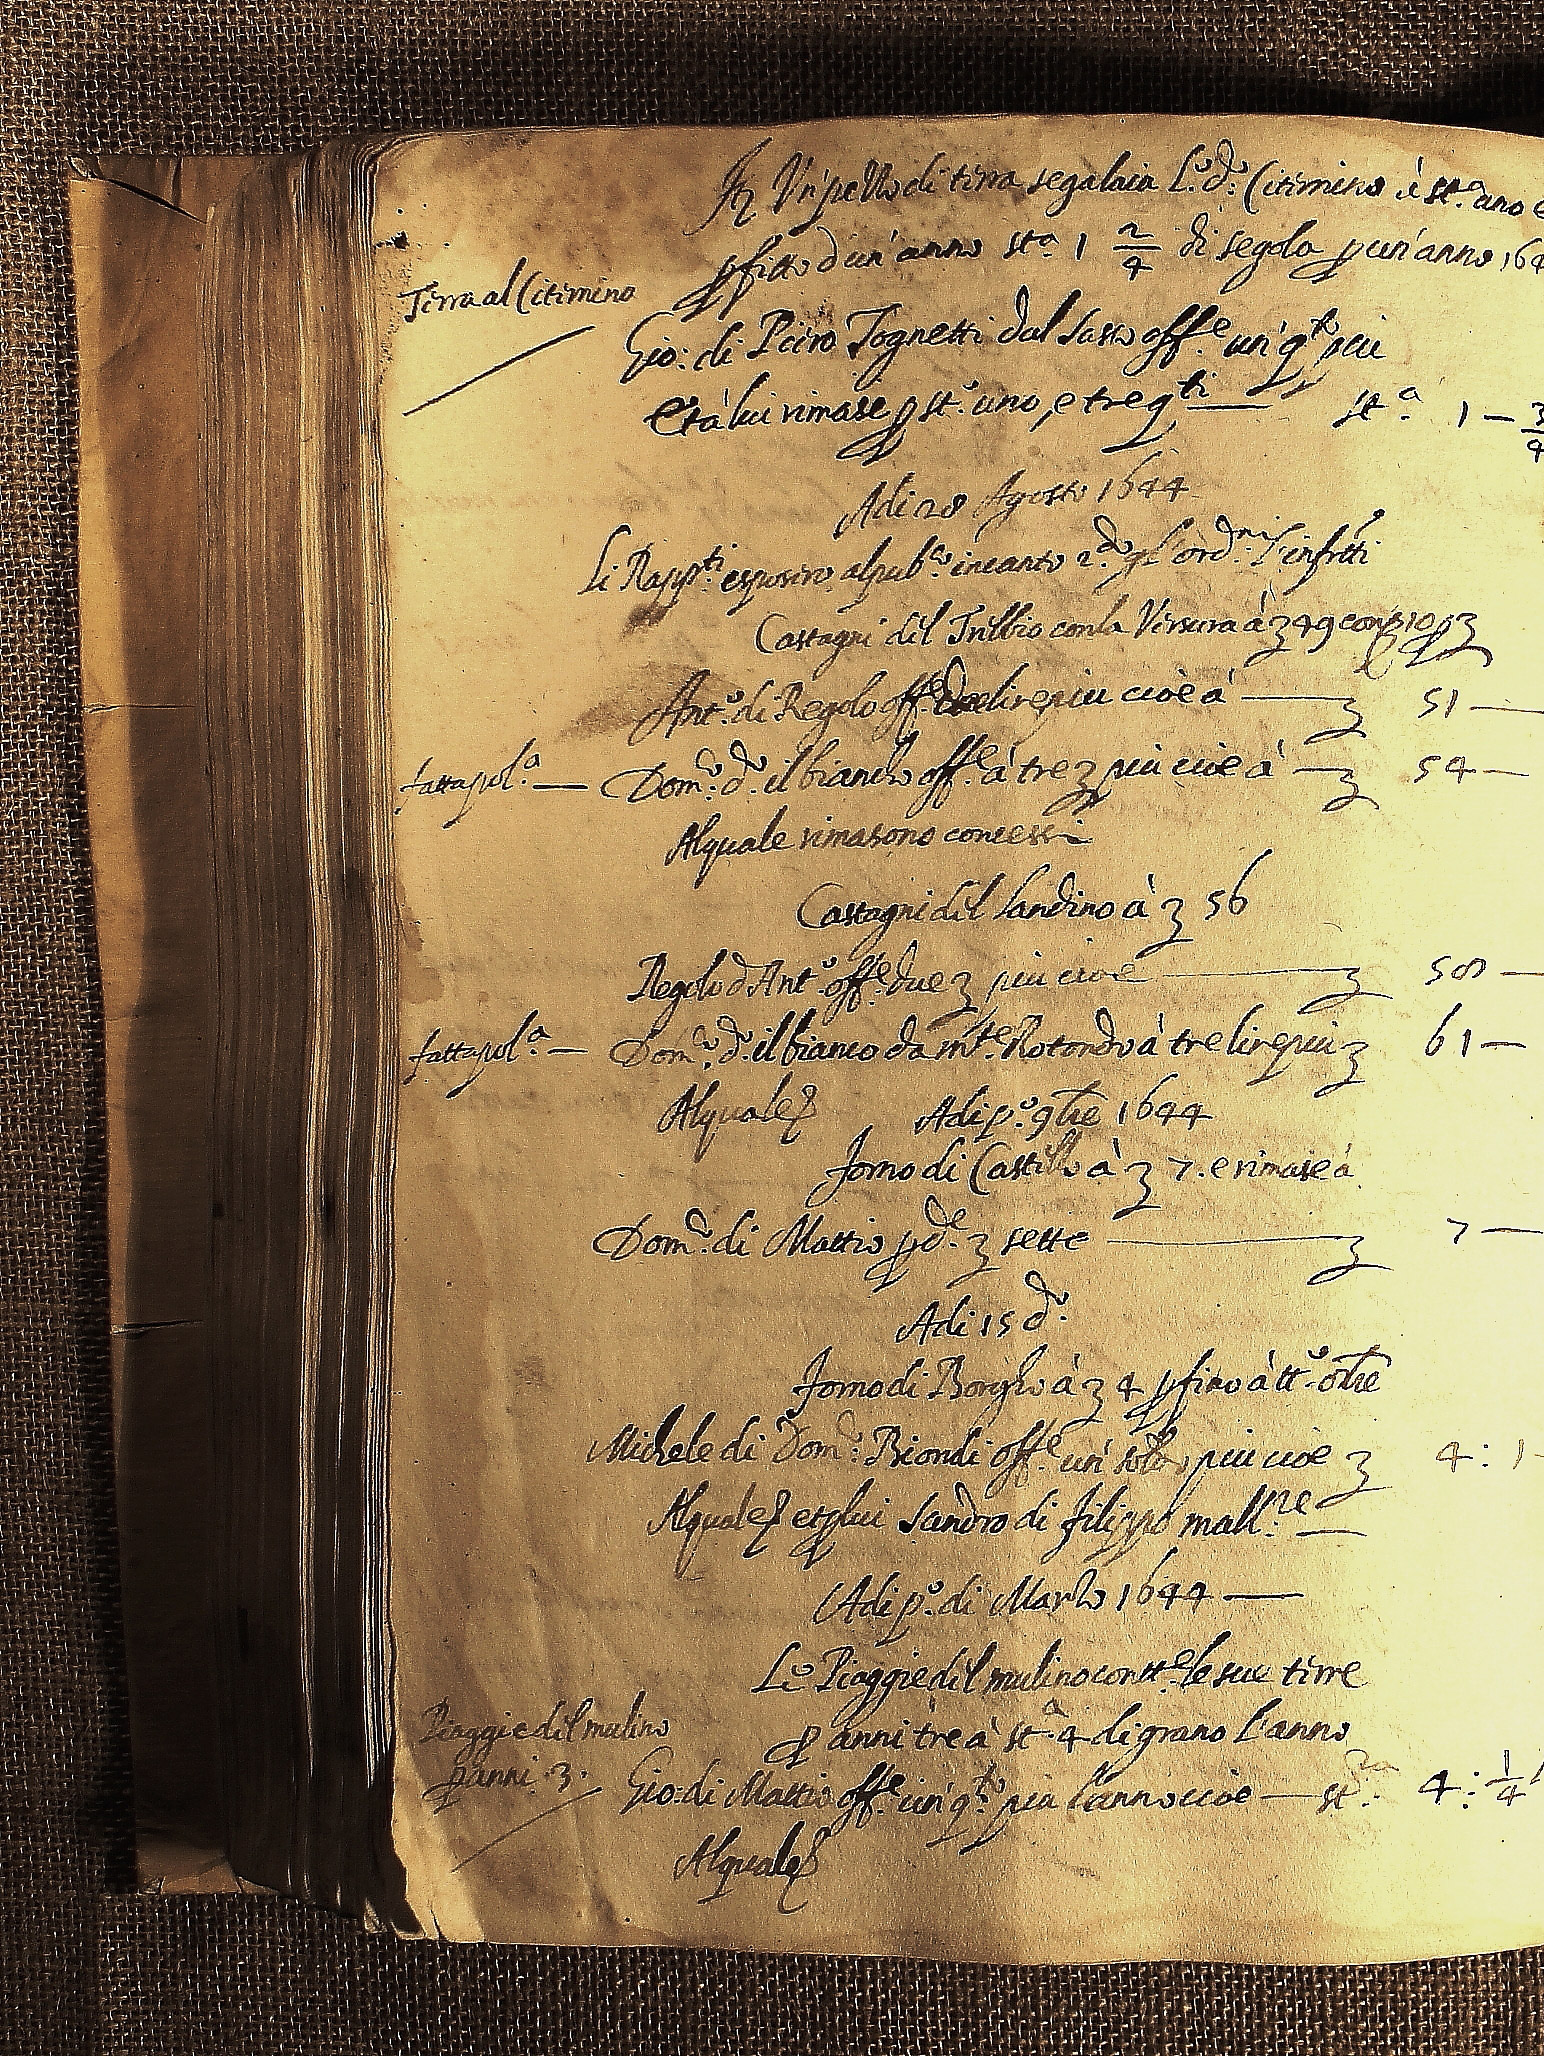 Un pezzo di terra segalaia L.º d.º Citimino è st.ª uno e
p fitto d'un'anno st.ª 1 2/4 di segola p un'anno 164
Terra al Citimino
Gio: di Piero Tognetti dal Sasso off.e un q.to piu
et à lui rimase p st.º uno, e tre q.ti — st.ª 1 — 3/4
Adi 28 Agosto 1644
Li Rapp.ti esposero al pub.co incanto 2.do gl'ord.ni l'infr.tti
Castagni del Trebbio con la Versura à
Ant.º di Regolo off.e due lire piu cioè à — 51 —
fatta pol.ª — Dom.co d.º il bianco off.e à tre piu cioè à — 54 —
Al quale rimasono concessi
Castagni del Sandino à 56
Regolo d'Ant.º off.e due piu cioè — 58 —
fatta pol.ª — Dom.co d.º il bianco da m.te Rotondo à tre lire piu 61 —
Al quale Adi p.º 9bre 1644
forno di Castello à 7. e rimase à
Dom.co di Mattio p d.e sette — 7 —
Adi 15 d.º
forno di Borgho à 4 p fino à tt.º
Michele di Dom.co Biondi off.e un soldo piu cioe 4 : 1
Al quale et p lui Sandro di filippo mall.re —
Adi p.º di Marzo 1644 —
Le Piaggie del mulino con tt.e le sue terre
p anni tre à st.ª 4 di grano l'anno
Piaggie del mulino
p anni 3.
Gio: di Mattio off.e un q.to piu l'anno cioe — st.ª 4 : 1/4
Al quale